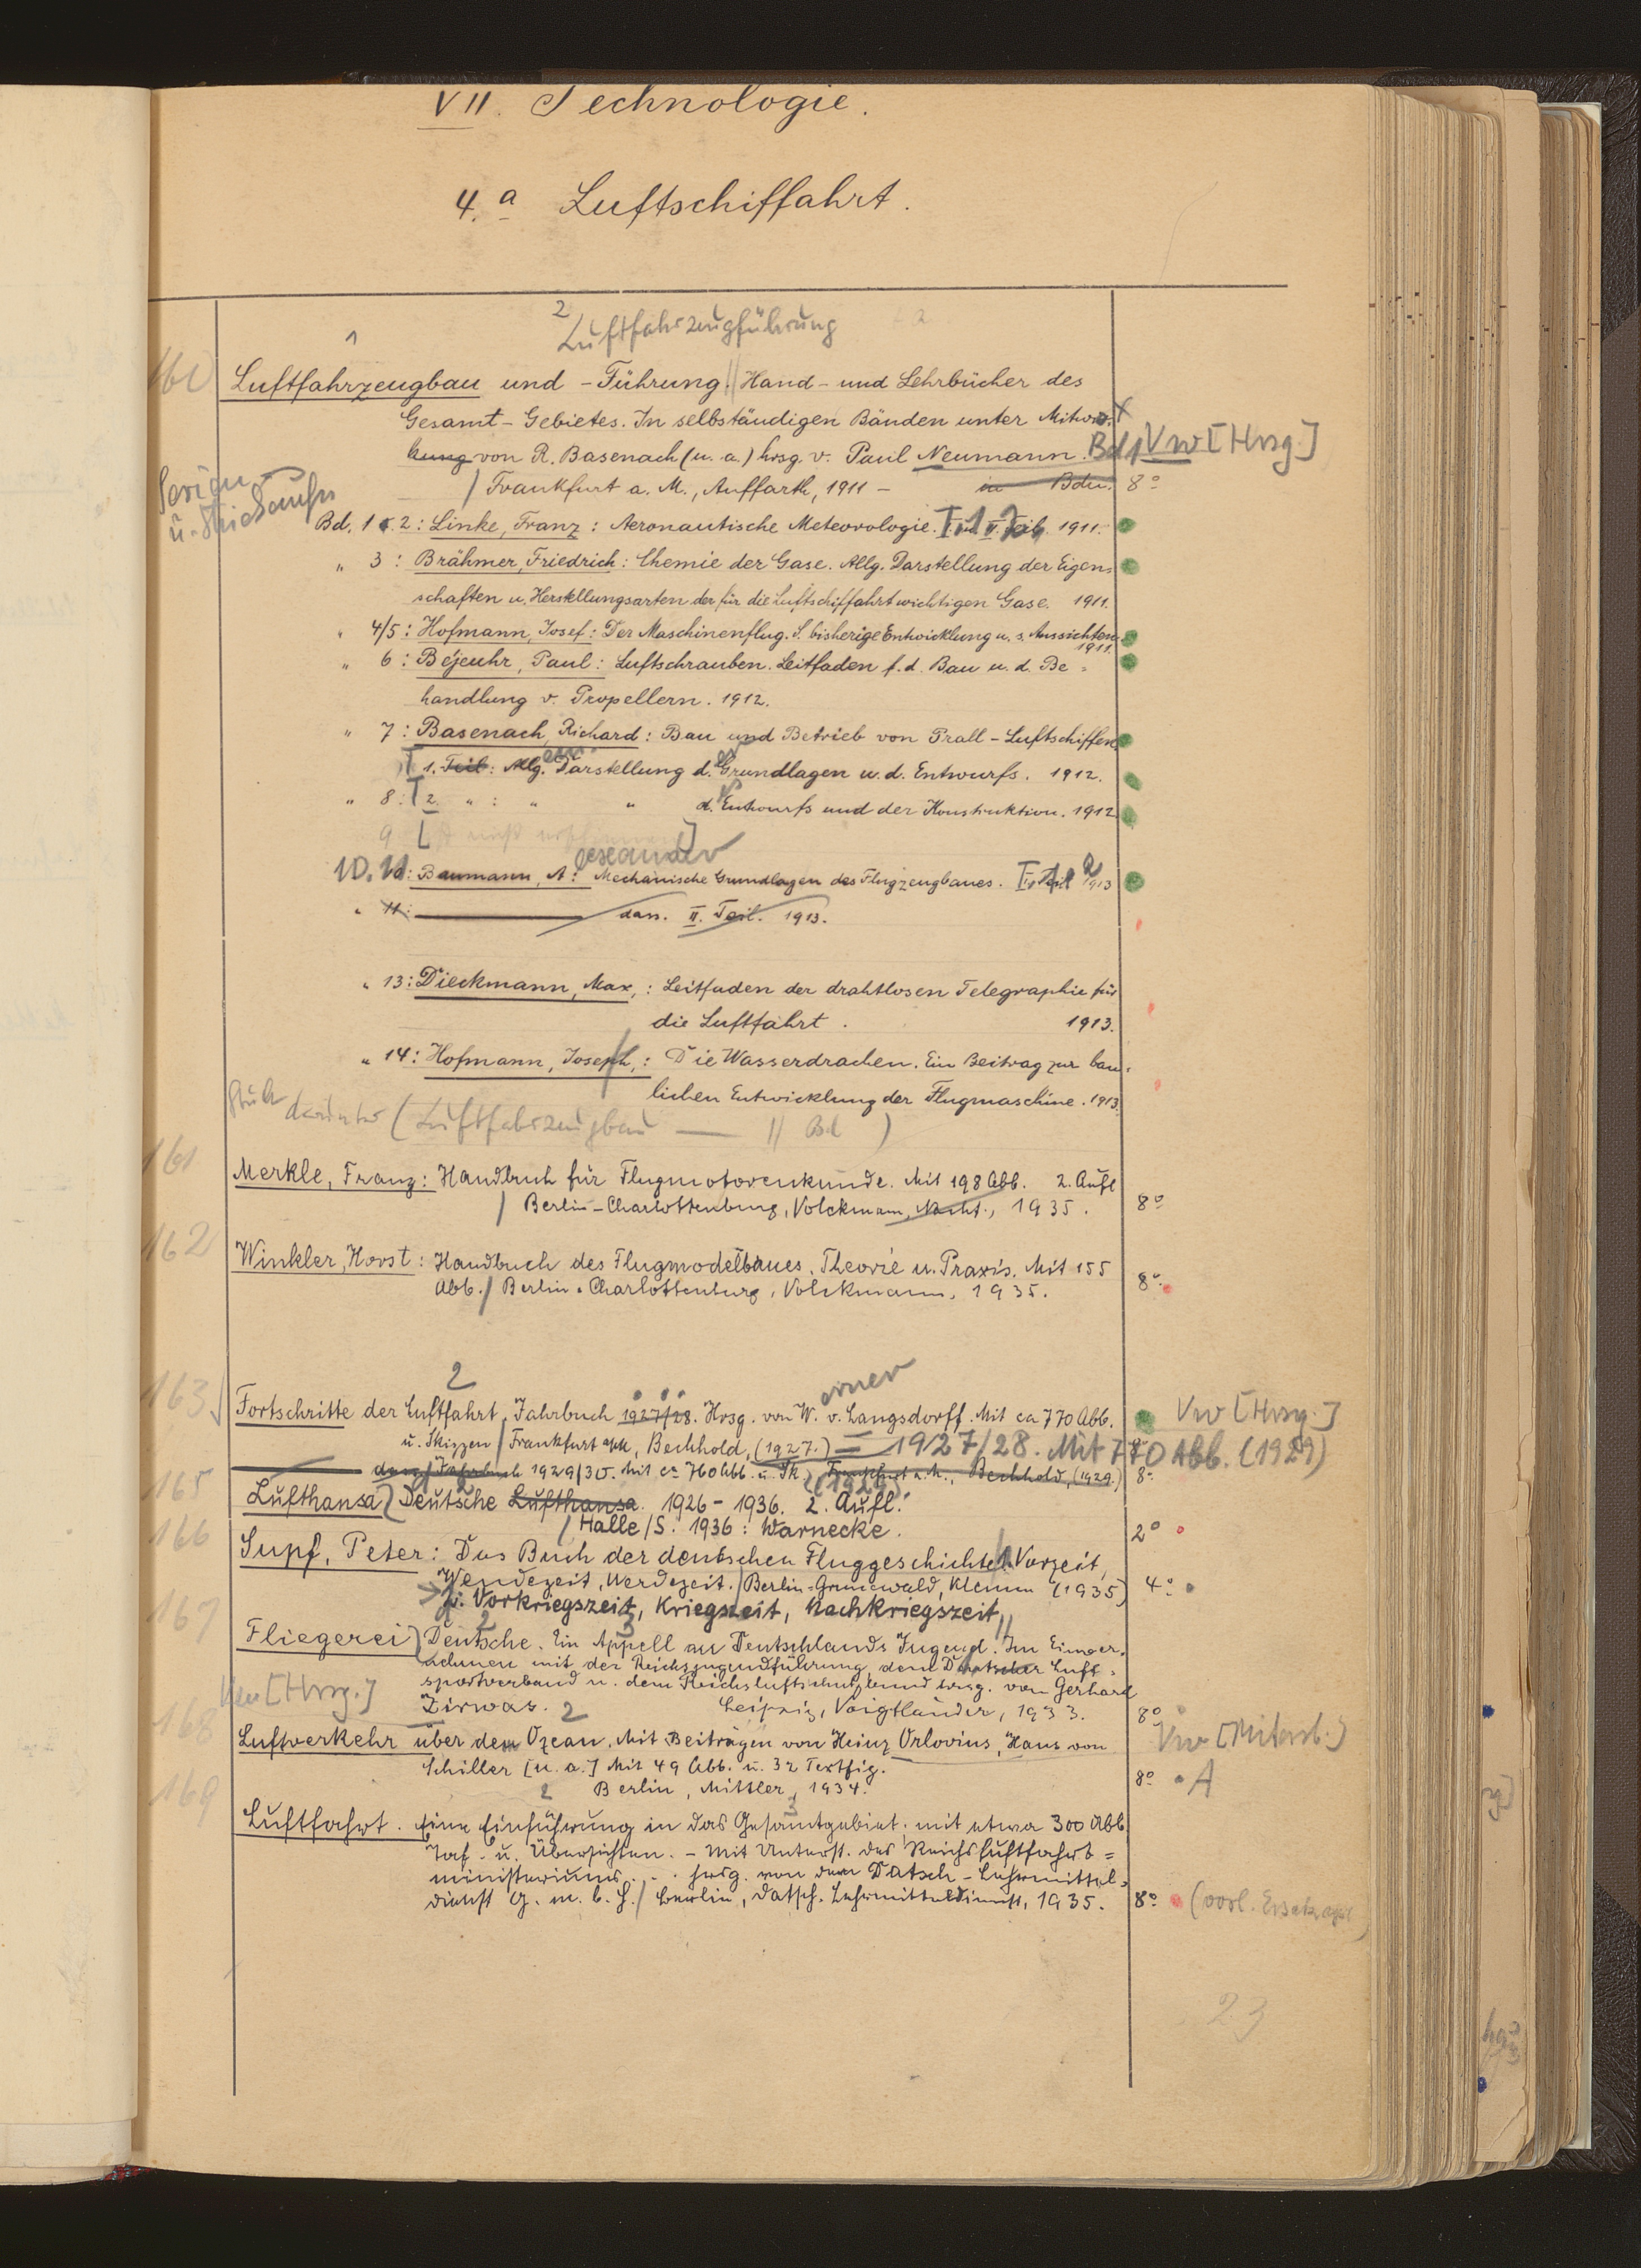 VII. Technologie.
4.a Luftschiffahrt.
2
Luftfahrzeugführung 2
1
160 Luftfahrzeugbau und -Führung. || Hand- und Lehrbücher des
Gesamt-Gebietes. In selbständigen Bänden unter Mitwir-
kung von R. Basenach (u. a.) hrsg. v. Paul Neumann. Bd 1 Vw [Hrsg.]
/ Frankfurt a. M., Auffarth, 1911 - in Bdn. 8°
Serien
u. Stichaufn
Bd. 1 2: Linke, Franz: Aeronautische Meteorologie. T. 1.2. II. Teil. 1911.
" 3: Brähmer, Friedrich: Chemie der Gase. Allg. Darstellung der Eigen-
schaften u. Herstellungsarten der für die Luftschiffahrt wichtigen Gase. 1911.
" 4/5: Hofmann, Josef: Der Maschinenflug. S. bisherige Entwicklung u. s. Aussichten.
1911.
" 6: Béjeuhr, Paul: Luftschrauben. Leitfaden f. d. Bau u. d. Be-
handlung v. Propellern. 1912.
" 7: Basenach, Richard: Bau und Betrieb von Prall-Luftschiffen
T 1. Teil: Allg. Darstellung d. Grundlagen u. d. Entwurfs. 1912.
" 8: T 2. " : " " d. Entwurfs und der Konstruktion. 1912
9 [ist nicht erschienen]
exander
10. 11: Baumann, A: Mechanische Grundlagen des Flugzeugbaues. I. Teil 1913
" 11: dass. II. Teil. 1913.
" 13: Dieckmann, Max,: Leitfaden der drahtlosen Telegraphie für
die Luftfahrt. 1913.
" 14: Hofmann, Joseph,: Die Wasserdrachen. Ein Beitrag zur bau-
lichen Entwicklung der Flugmaschine. 1913.
darunter (Luftfahrzeugbau — || Bd )
161 Merkle, Franz: Handbuch für Flugmotorenkunde. Mit 198 Abb. 2. Aufl
/ Berlin-Charlottenburg, Volckmann, Nachf., 1935. 8°
162 Winkler, Horst: Handbuch des Flugmodellbaues. Theorie u. Praxis. Mit 155
Abb. / Berlin-Charlottenburg, Volckmann, 1935. 8°
2 erner
163 Fortschritte der Luftfahrt, Jahrbuch 1927/28. Hrsg. von W. v. Langsdorff. Mit ca 770 Abb. Vw [Hrsg.]
u. Skizzen / Frankfurt a/M, Bechhold, (1927.) = 1927/28. Mit 770 Abb. (1929)
dass. Jahrbuch 1929/30. Mit ca 760 Abb. u. Sk. Frankfurt a. M., Bechhold, (1929.) 8°
(1929)
165 Lufthansa, Deutsche Lufthansa. 1926-1936. 2. Aufl.
/ Halle/S. 1936: Warnecke. 2°
166 Supf, Peter: Das Buch der deutschen Fluggeschichte. 1. Vorzeit,
Wendezeit, Werdezeit. / Berlin-Grunewald, Klemm (1935) 4°
2: Vorkriegszeit, Kriegszeit, Nachkriegszeit //
167 Fliegerei, Deutsche. Ein Appell an Deutschlands Jugend. Im Einver-
nehmen mit der Reichsjugendführung, dem Deutscher Luft-
sportverband u. dem Reichsluftschutzbund hrsg. von Gerhard
Vw [Hrsg.] Zirwas. 2 Leipzig, Voigtländer, 1933. 8°
168 Luftverkehr über dem Ozean. Mit Beiträgen von Heinz Orlovius, Hans von Vw [Mitarb.]
Schiller [u. a.] Mit 49 Abb. u. 32 Textfig.
2 Berlin, Mittler, 1934. 8° A
169 Luftfahrt. Eine Einführung in das Gesamtgebiet, mit etwa 300 Abb
Taf. u. Übersichten. - Mit Unterst. des Reichsluftfahrt-
ministeriums . . . hrsg. von dem Datsch-Lehrmittel-
dienst G. m. b. H. / Berlin, Datsch-Lehrmitteldienst, 1935. 8° (vorl. Ersatz
23